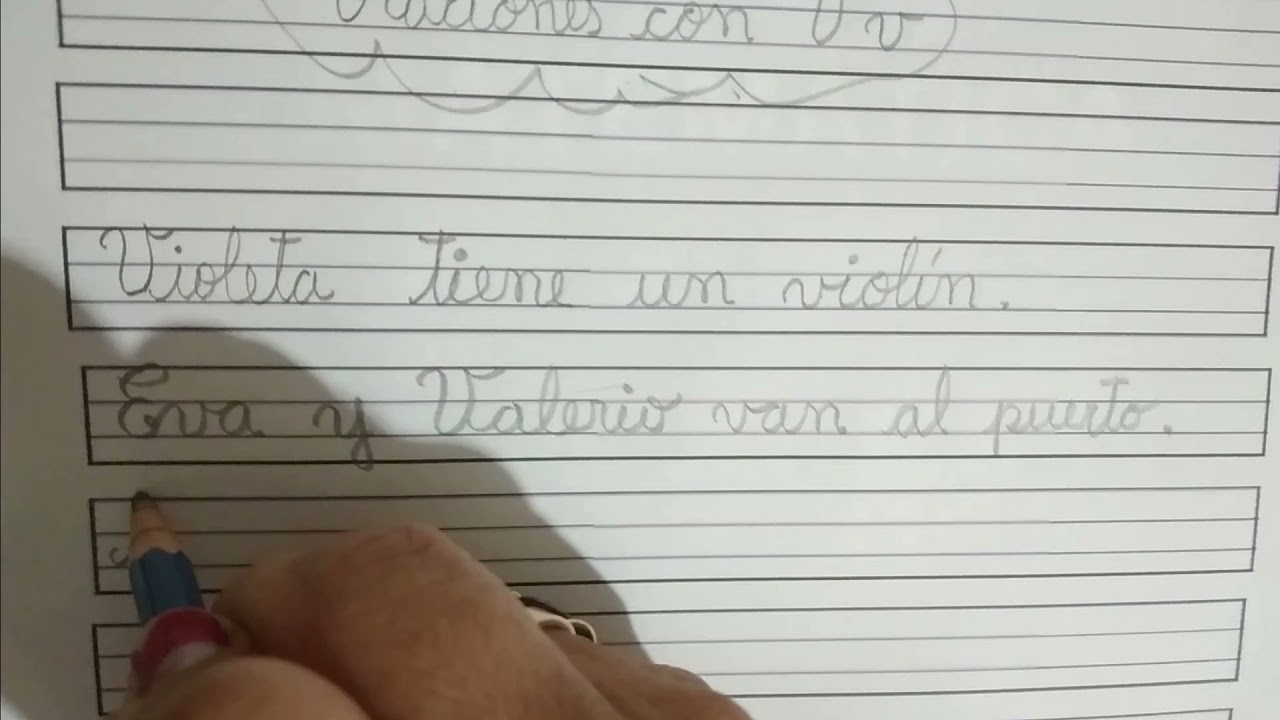 con V v
Violeta tiene un violín.
Eva y Valerio van al puerto.